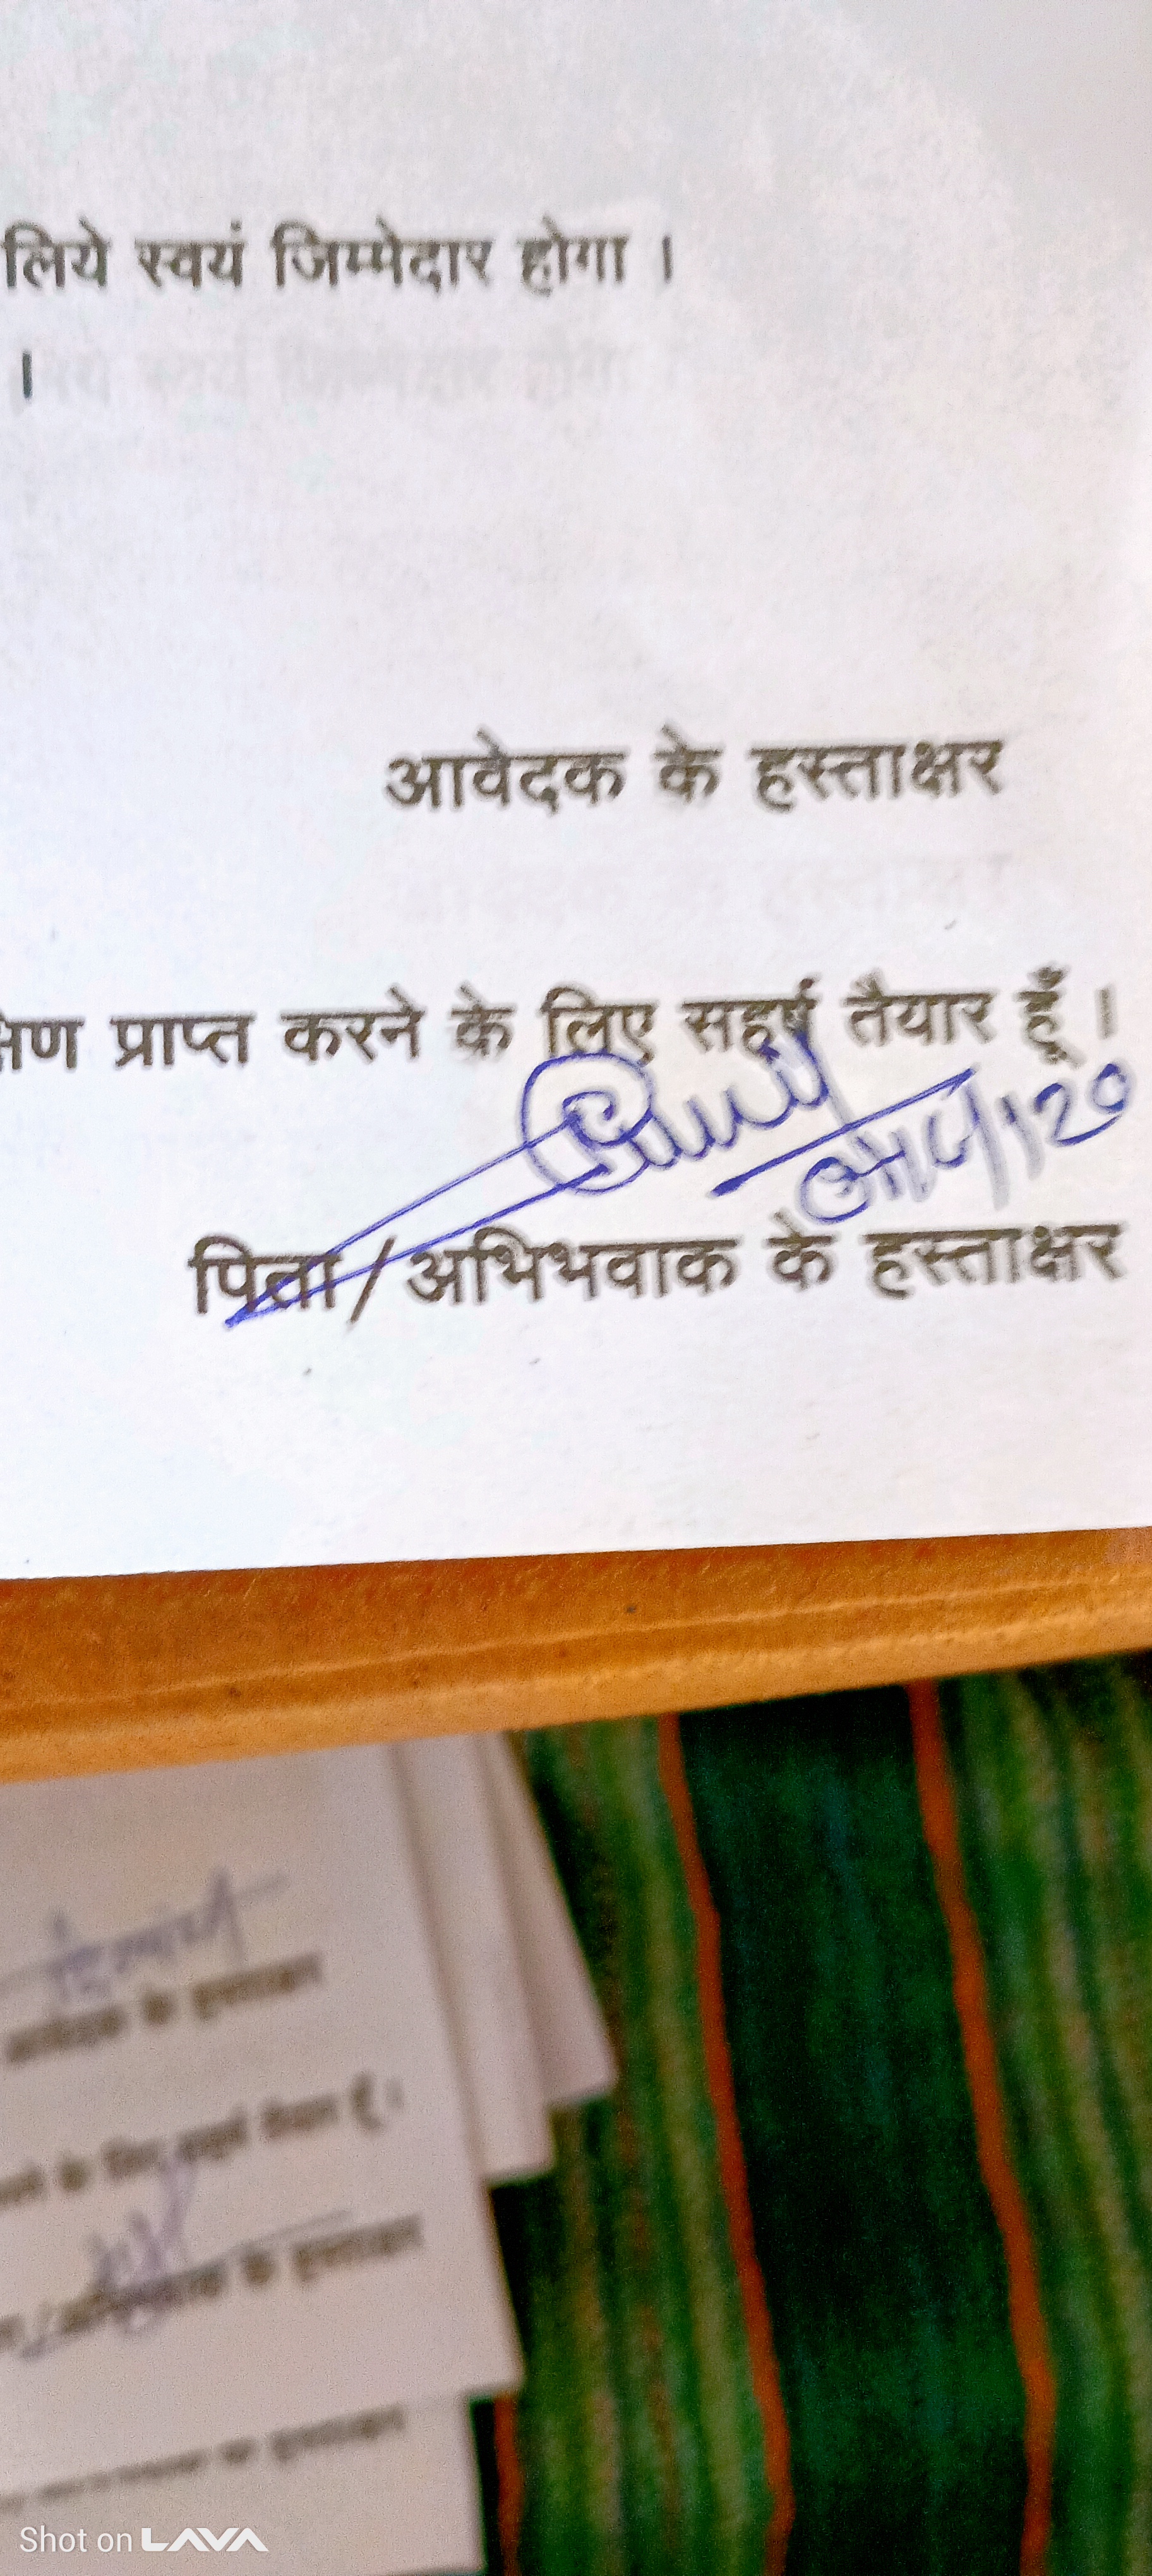 लिये स्वयं जिम्मेदार होगा ।
।
आवेदक के हस्ताक्षर
क्षिण प्राप्त करने के लिए सहर्ष तैयार हूँ ।
पिता / अभिभवाक के हस्ताक्षर
के हस्ताक्षर
के लिए सहर्ष तैयार हूँ ।
के हस्ताक्षर
Shot on LAVA